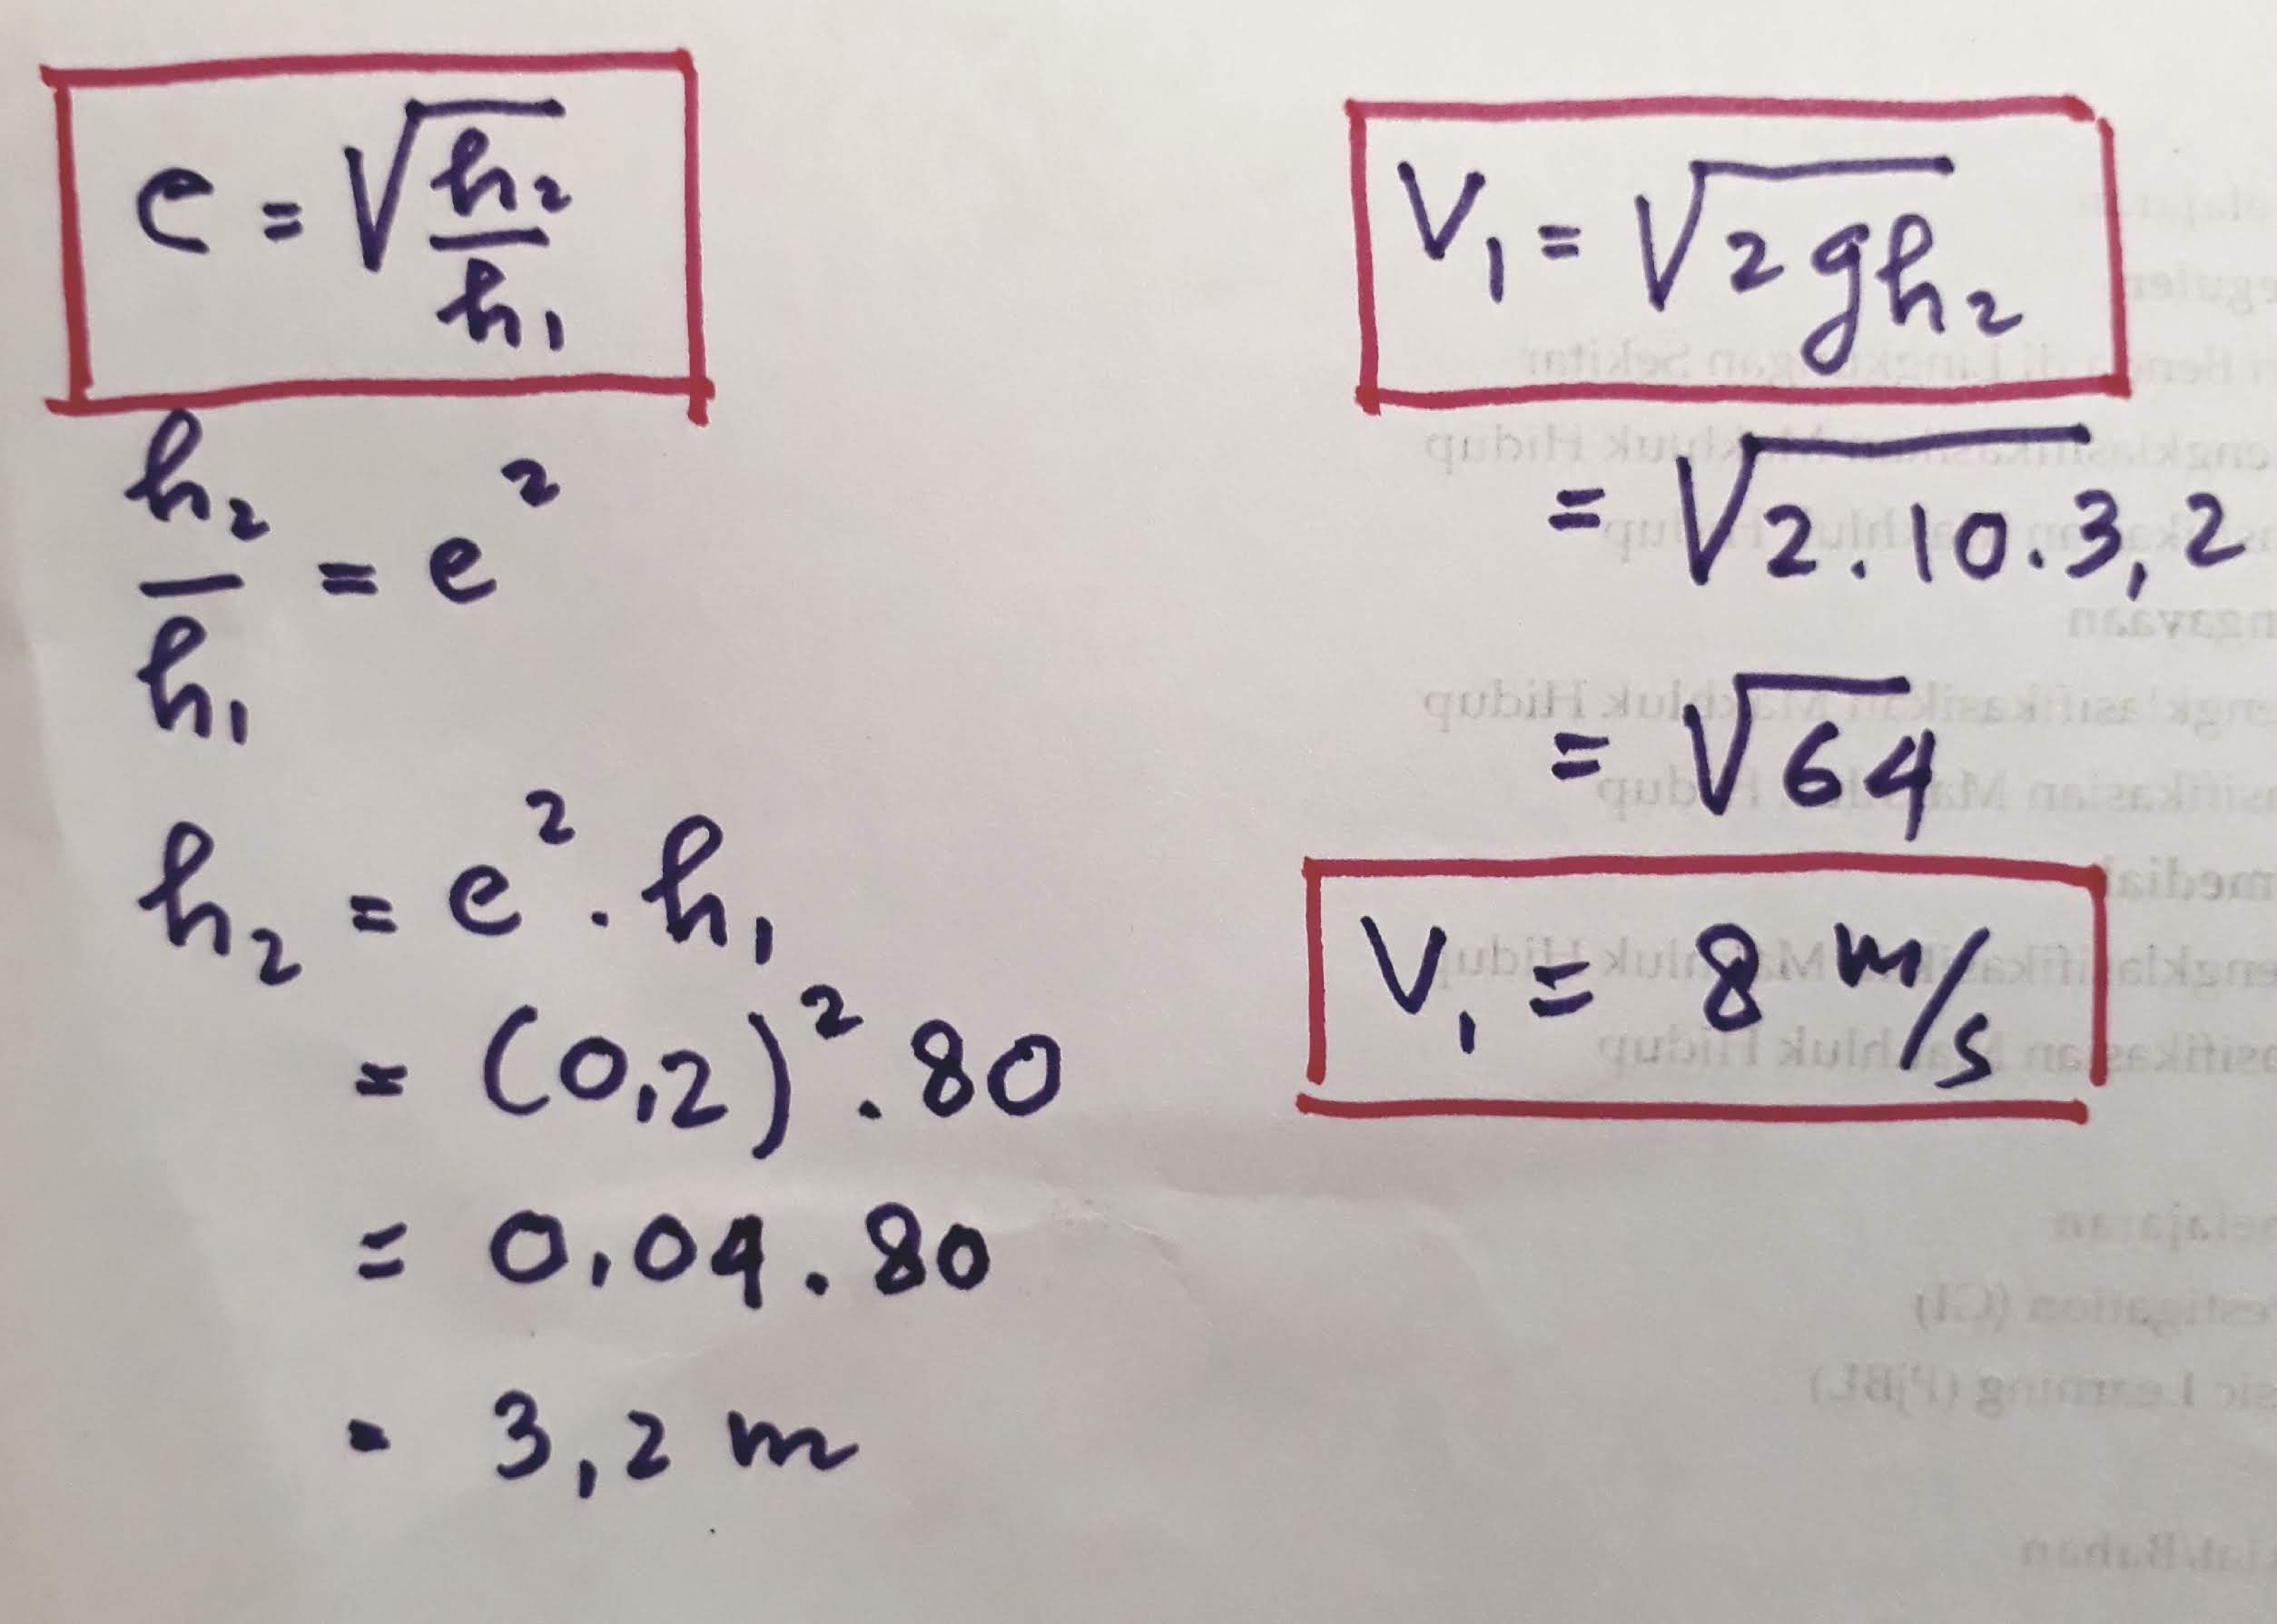 e = √(h₂/h₁)
h₂/h₁ = e²
h₂ = e² . h₁
= (0,2)² . 80
= 0,04 . 80
= 3,2 m
V₁ = √2gh₂
= √2.10.3,2
= √64
V₁ = 8 m/s